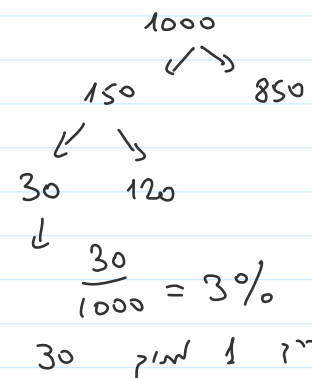 1000
150 850
30 120
30/1000 = 3%
30 1